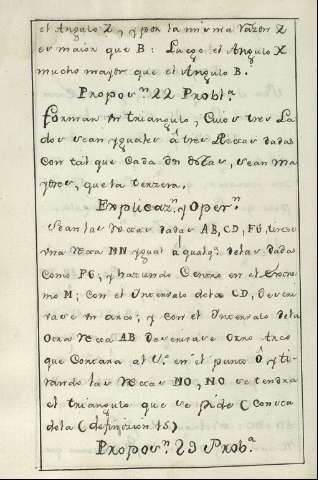 el Angulo Z, y por la misma razon Z
es maior que B: Luego el Angulo X
mucho mayor que el Angulo B.
Propos.ⁿ 22 Probl.ª
formar un triangulo, cuios tres La
dos sean yguales â tres Rectas dadas
con tal que cada dos dellas, sean ma
yores, que la terzera.
Explicaz.ⁿ y Oper.ⁿ
Sean las rectas dadas AB, CD, FG,
una recta MN ygual â qualq.ª delas dadas
como FG, y haziendo Centro en el extre
mo M; con el Yntervalo dela CD, descri
vase un arco; y con el Yntervalo dela
otra recta AB descrivase otro arco
que Cortara al 1.º en el punto Ô y ti
rando las rectas MO, NO se tendra
el triangulo que se pide (Consta
dela (definizion 15)
Propos.ⁿ 23 Prob.ª